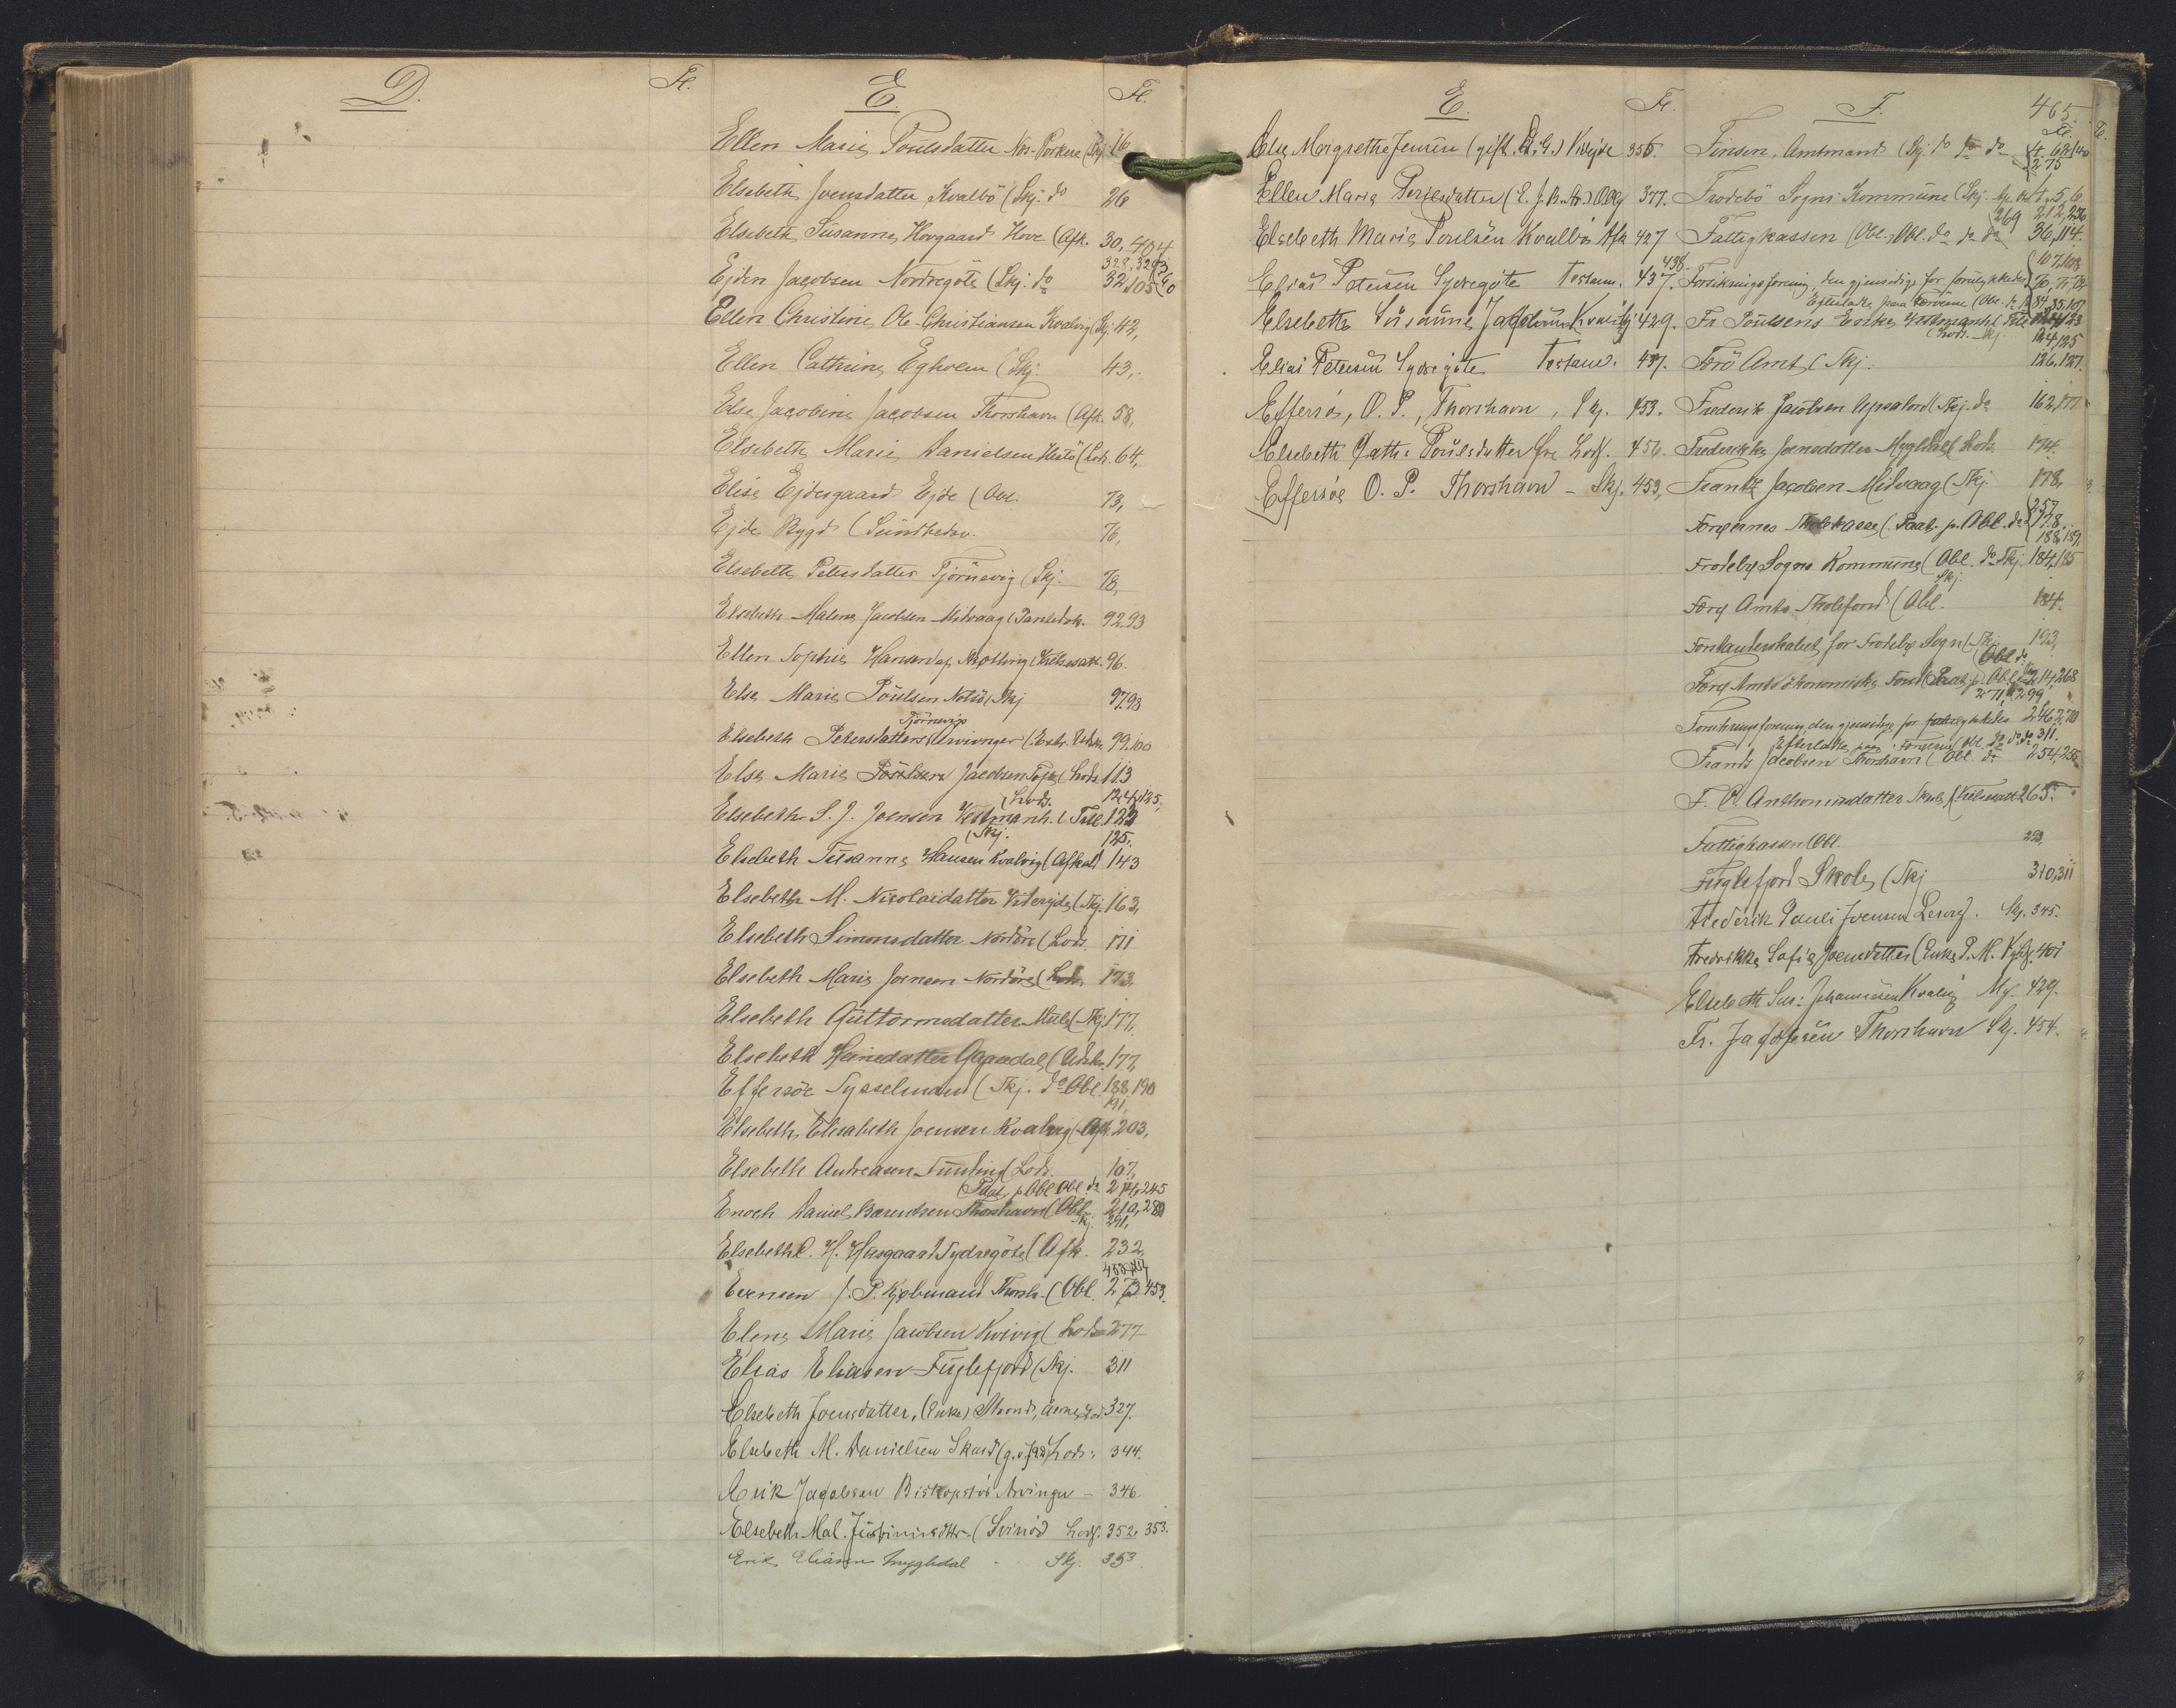 D.
Fl.
E.
Fl.
Ellen Marie Poulsdatter Nr. Porkere (Skj. 16
Elsebeth Joensdatter Kvalbö (Skj. do 26
Elsebeth Susanne Hovgaard Hove (Afk. 30, 404
328, 329
Ejden Jacobsen Nordregöte (Skj. do 32, 105
Ellen Christine Ole Christiansen Kvalvig (Skj. 42,
Ellen Cathrine Egholm (Skj. 43,
Else Jacobine Jacobsen Thorshavn (Afk. 58,
Elsebeth Marie Danielsen Hestö (Lods. 64,
Elise Ejdesgaard Ejde (Obl. 73,
Ejde Bygd (Sundhedsv. 76,
Elsebeth Petersdatter Tjörnevig (Skj. 78,
Elsebeth Malene Jacobsen Midvaag (Panledok. 92.93
Ellen Sophie Hansen 96.
Else Marie Poulsen Nolsö (Skj 97.98
Tjörnevig
Elsebeth Petersdatters Arvinger (Extr. Udskr. 99.100
Else Marie Jacobsen (Lods 113
(Lods. 124, 125,
Elsebeth S. J. Joensen Vestmanh. (Till. 123
(Skj. 125.
Elsebeth Susanne Hansen Kvalvig (Afkald 143
Elsebeth M. Nicolaidatter Viderejde (Skj. 163,
Elsebeth Simonsdatter Nordöre (Lods. 171
Elsebeth Marie Joensen Nordöre (Lods 173,
Elsebeth Guttormsdatter Mule (Skj. 177,
Elsebeth Heinedatter Gaasedal (Udskr. 177,
Effersöe Sysselmand (Skj. do Obl. 188.190
191,
Elsebeth Elisabeth Joensen Kvalvig (Afk. 203,
Elsebeth Andreasen Funding (Lods. 107,
(Paat. p. Obl Obl. do 214, 245
Enoch Daniel Baerentsen Thorshavn (Obl. 210, 280
Skj. 291,
Elsebeth C. H. Husgaard Sydregöte (Afk. 232,
Evensen J. P. Kjøbmand Thorsh. (Obl. 273 453.
Elene Marie Jacobsen Kvivig (Lods 277
Elias Eliasen Fuglefjord (Skj. 311
Elsebeth Joensdatter, (Enke) Strond, 327.
Elsebeth M. Danielsen Skard (g. Lods: 344.
Erik Jacobsen Biskopstö's Arvinger – 346.
Elsebeth Mal. Justinusdttr. (Svinö) Lods. 352, 353.
Erik Eliasen Mygledal Skj. 353.
E.
Fl.
Else Margrethe Jensen (gift. Viderejde 356.
Ellen Marie Peersdatter (E. J. 377.
Elsebeth Marie Poulsen Kvalbö Afk 427
438.
Elias Petersen Sydregöte Testam. 437.
Elsebeth Susanne Jacobsen Kvalvig 429.
Elias Petersen Sydregöte Testam. 437.
Effersöe, O. P., Thorshavn, Skj. 453.
Elsebeth Cath: Poulsdatter Lods. 456.
Effersöe O. P. Thorshavn – Skj. 453,
F.
465.
Fl.
Finsen, Amtmand (Skj. do do do 4, 68
275
Frodebö Sogns Kommune (Skj. 4, 5, 6.
269 212, 256
Fattigkassen (Obl., Obl. do do do 36, 114.
107, 108
Forsikringsforening, den gjensidige for forulykkedes
Efterladte paa Færöerne (Obl. do 84, 85, 107
Fr. Poulsens Enke, Vestmanh. (Till. 123
(Lods. Skj. 124, 125
Færö Amt (Skj. 126.127.
Frederik Jacobsen (Skj. do 162,
Frederikke Joensdatter Mygledal (Lods. 174.
Frantz Jacobsen Midvaag (Skj. 178,
257
Færöernes (Paat. p. Obl. do 178.
188, 189.
Frodebø Sogns Kommune (Obl. do Skj. 184, 185
Skj.
Færø Amts Skolefond (Obl. 184.
Forstanderskabet for Frodebø Sogn (Skj. 193,
(Obl do
Færø Amts ökonomiske Fond (Paat. p. Obl. 214, 268
271, 299
Forsikringsforening, den gjensidige for forulykkedes 246, 270
Efterladte paa Færöerne (Obl. do do do 311.
Frants Jacobsen Thorshavn (Obl. do 254, 255
F. C. Anthoniusdatter 265.
Fattigkassen (Obl. 293,
Fuglefjord Skole, (Skj 310, 311
Frederik Pauli Joensen Skj. 345.
Fredrikke Sofie Joensdatter (Enke P. M. 401
Elsebeth Sus: Johannesen Kvalvig 429.
Fr. Jacobsen Thorshavn Skj. 454.